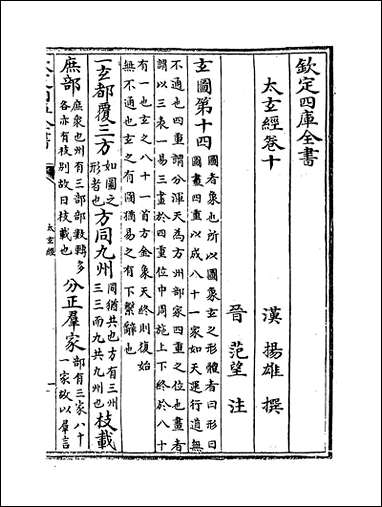 欽定四庫全書
太玄經卷十
漢 揚雄 撰
晉 范望 注
玄圖第十四 圖者象也所以圖象玄之形體者曰形曰
圖畫四重以成八十一家如天運行道無
不通也四重謂分渾天為方州部家四重之位也畫者
謂以三表一易三畫於四重位中周施上下終於八十
有一也玄之八十一首方金象天終則復始
無不通也玄之有圖猶易之有下繫辭也
一玄都覆三方 如圖之形者也 方同九州 同猶共也方有三州三三而九共九州也 枝載
庶部 庶衆也州有三部部數轉多各亦有枝別故曰枝載也 分正羣家 部有三家八十一家故以羣言
太玄經